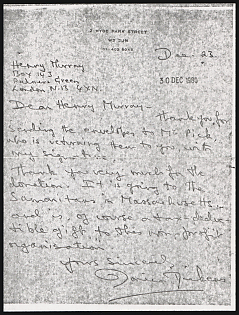 2 HYDE PARK STREET
W2 2JN
Dec 23
Henry Murray
Box 143
Palmers Green
London N.13 4XN
30 DEC 1980
Dear Henry Murray -
Thank you for
sending the envelopes to Mr Pick
who is returning them to you with
my signature.
Thank you very much for the
donation. It is going to the
Samaritans in Massachusetts
and is, of course a tax-deduc-
tible gift to this non-profit
organisation
Yours Sincerely,